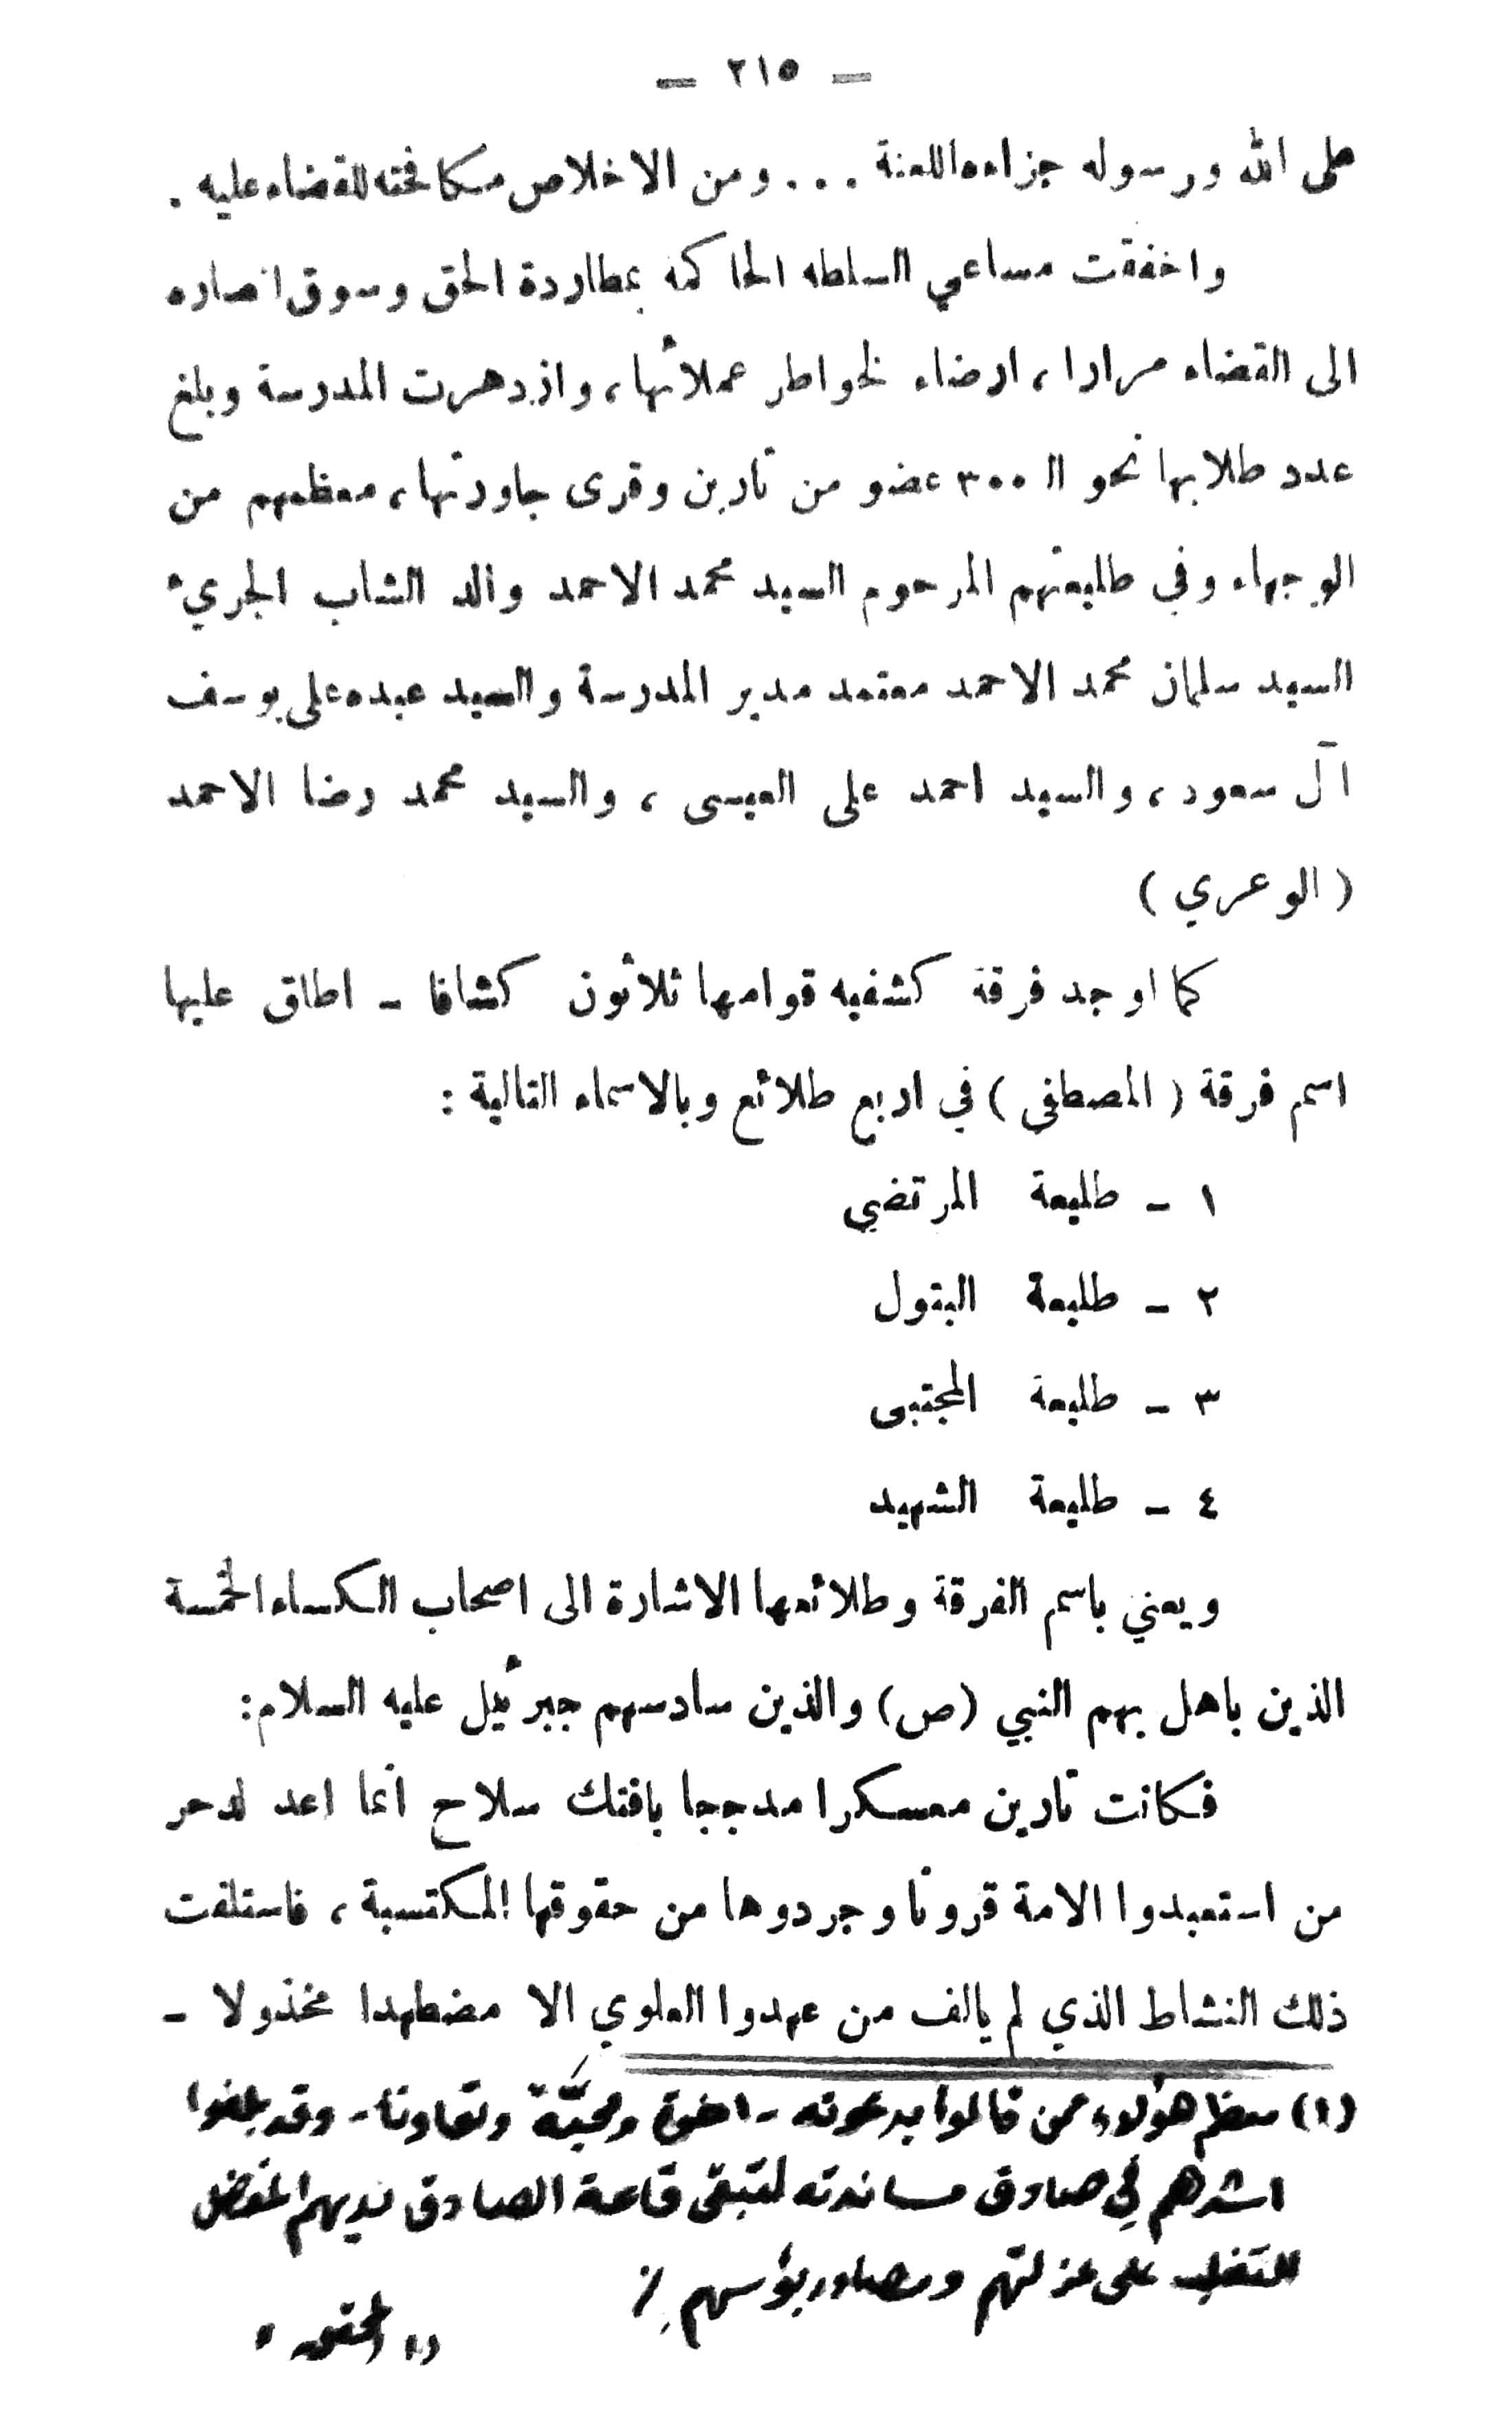 — ٢١٥ —
على الله ورسوله جزاءه اللعنة ... ومن الاخلاص مكافحته للقضاء عليه .
واخفقت مساعي السلطه الحاكمه بمطاردة الحق وسوق انصاره
الى القضاء مرارا ، ارضاء لخواطر عملائها ، وازدهرت المدرسة وبلغ
عدد طلابها نحو الـ ٣٠٠ عضو من تارين وقرى جاورتها ، معظمهم من
الوجهاء وفي طليعتهم المرحوم السيد محمد الاحمد والد الشاب الجريء
السيد سلمان محمد الاحمد معتمد مدير المدرسة والسيد عبده علي يوسف
آل سعود ، والسيد احمد علي العيسى ، والسيد محمد رضا الاحمد
( الوعري )
كما اوجد فرقة كشفيه قوامها ثلاثون كشافا - اطلق عليها
اسم فرقة ( المصطفى ) في اربع طلائع وبالاسماء التالية :
١ - طليعة المرتضي
٢ - طليعة البتول
٣ - طليعة المجتبى
٤ - طليعة الشهيد
ويعني باسم الفرقة وطلائعها الاشارة الى اصحاب الكساء الخمسة
الذين باهل بهم النبي (ص) والذين سادسهم جبرئيل عليه السلام :
فكانت تارين معسكرا مدججا بافتك سلاح انما اعد لدحر
من استعبدوا الامة قرونا وجردوها من حقوقها المكتسبة ، فاستلفت
ذلك النشاط الذي لم يالف من عهدوا العلوي الا مضطهدا مخذولا -
(١) معظم هؤلاء ممن قالوا بدعوته - اخوة ومحبّة وتعاونا - وقد بلغوا
اشدهم في صادق مساندته لتبقى قاعة الصادق نديهم المفضل
للتغلب على عزلتهم ومصادر بؤسهم ./